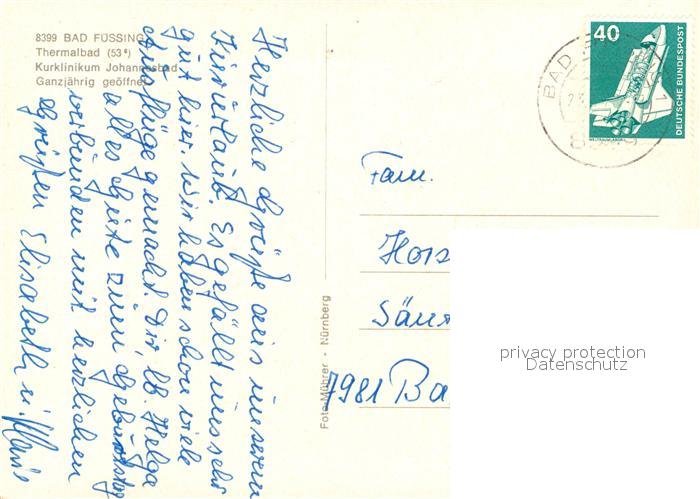 8399 BAD FÜSSING
Thermalbad (53°)
Kurklinikum Johannesbad
Ganzjährig geöffnet
Herzliche Grüße aus unserem
Kurzurlaub. Es gefällt uns sehr
gut hier. Wir haben schon viele
Ausflüge gemacht. Dir, lb. Helga
alles Gute zum Geburtstag
verbunden mit herzlichen
Grüßen Elisabeth u.
Foto-Mührer - Nürnberg
40
DEUTSCHE BUNDESPOST
BAD
Fam.
Hors
7981 Ba
privacy protection
Datenschutz